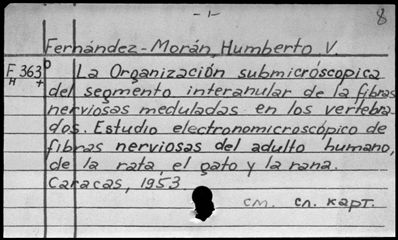 -1-
8
Fernández-Morán, Humberto V.
F 363 o La Organización submicróscopica
H + del segmento interanular de la fibras
nerviosas meduladas en los vertebra-
dos. Estudio electronomicroscópico de
fibras nerviosas del adulto humano,
de la rata, el gato y la rana.
Caracas, 1953
см. сл. карт.